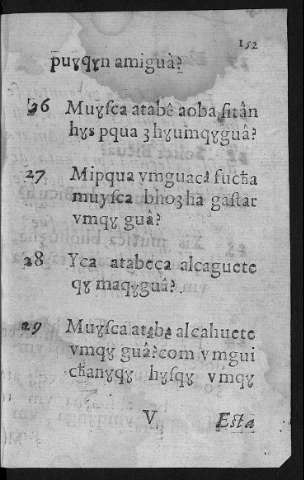 152
p̄uɣqɣn amiguà?
26 Muɣsca atabê aoba sitân
hɣs pqua ȝhɣumqɣguâ?
27 Mipqua vmguaca sucħa
muɣsca bhoȝha gastar
vmqɣ guâ?
28 Yca atabeça alcaguete
qɣ maqɣguâ?
29 Muɣsca atabe alcahuete
vmqɣ guâ? com vmgui
cħanɣqɣ hɣsqɣ vmqɣ
V Esta